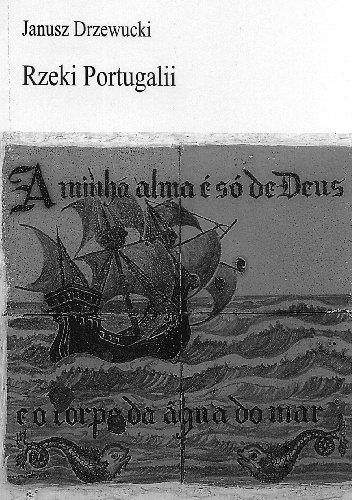 Janusz Drzewucki
Rzeki Portugalii
A minha alma é só de Deus
e o corpo da água do mar